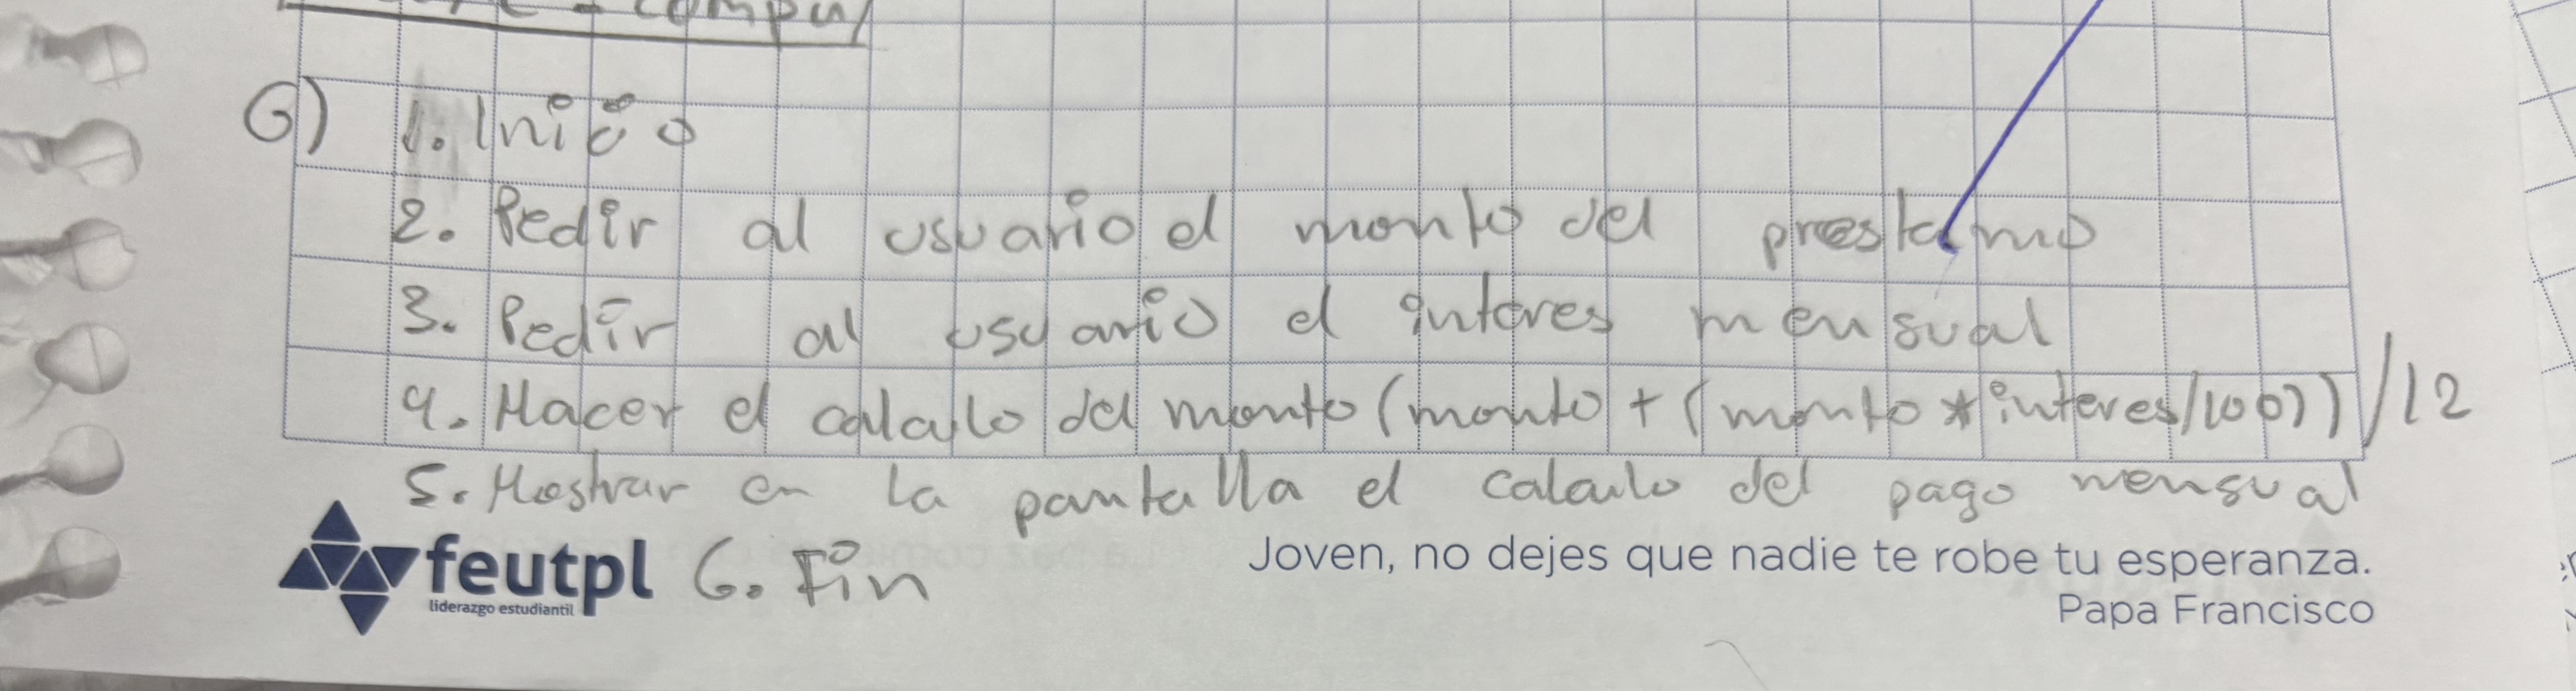 6) 1. Inicio
2. Pedir al usuario el monto del prestamo
3. Pedir al usuario el interes mensual
4. Hacer el calculo del monto (monto + (monto * interes/100)) /12
5. Mostrar en la pantalla el calculo del pago mensual
feutpl 6. Fin
liderazgo estudiantil
Joven, no dejes que nadie te robe tu esperanza.
Papa Francisco